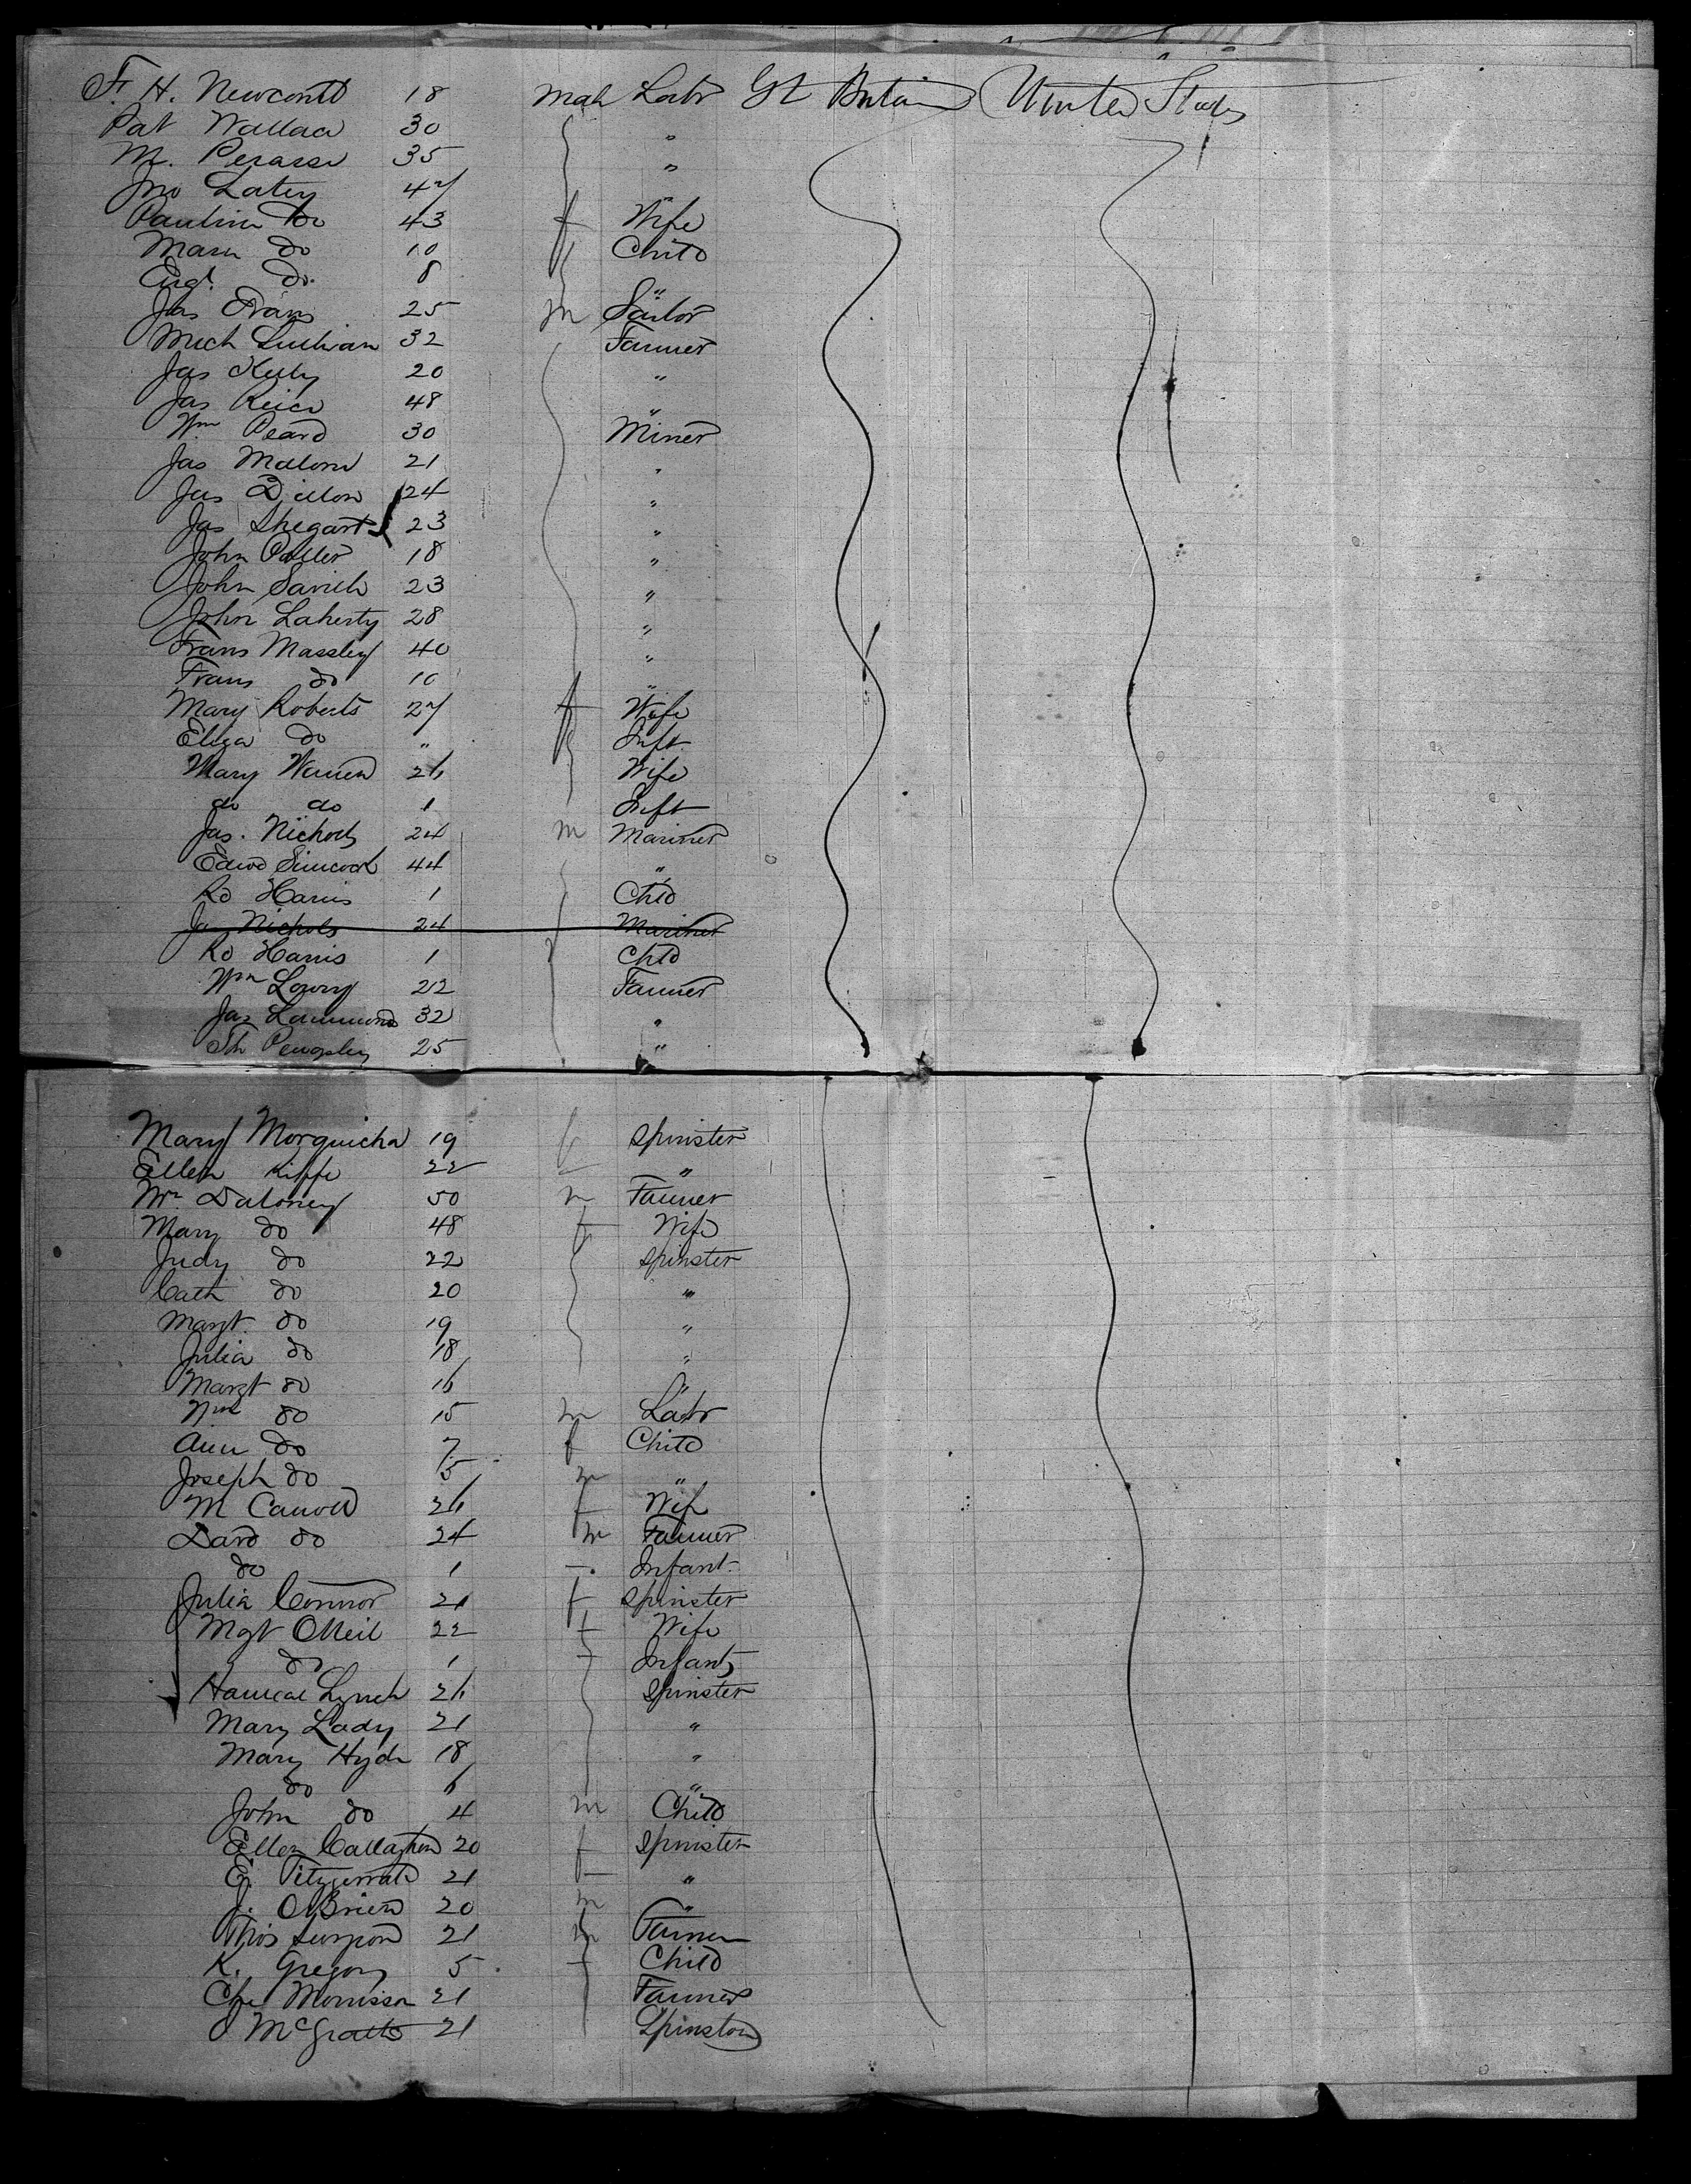 F. H. Newcomb 18 Male Labr Gt Britain United States
Pat Wallace 30 "
M. 35 "
Jno Latey 47 "
Pauline do 43 f Wife
Mary do 10 Child
do 8 "
Jas Evans 25 m Sailor
Mich Sullivan 32 Farmer
Jas Kelly 20 "
Jas 48 "
Wm Peard 30 Miner
Jas Malone 21 "
Jas Dillon 24 "
Jas Shegart 23 "
John Potter 18 "
John 23 "
John Laherty 28 "
Frans Massley 40 "
Frans do 10 "
Mary Roberts 27 f Wife
Eliza do " Inft
Mary Warren 26 Wife
do do 1 Inft
Jas. Nichols 24 m Mariner
Edwd Simcock 44 "
Rd Harris 1 Chld
Jas Nichols 24 Mariner
Rd Harris 1 Chld
Wm Lowry 22 Farmer
Jas 32 "
25 "
Mary 19 f Spinster
Ellen 22 "
Wm Daloney 50 m Farmer
Mary do 48 f Wife
Judy do 22 Spinster
Cath do 20 "
Margt. do 19 "
Julia do 18 "
Margt do 16 "
Wm do 15 m Labr
Ann do 7 f Child
Joseph do 5 m "
M Carroll 26 f Wife
David do 24 m Farmer
do 1 Infant
Julia Connor 21 f Spinster
Mgt ONeil 22 f Wife
do 1 Infant
Lynch 26 Spinster
Mary Lady 21 "
Mary Hyde 18 "
do 6 "
John do 4 m Child
Ellen Callaghan 20 f Spinster
E. Fitzgerrald 21 "
J. OBrien 20 m "
Thos 21 m Farmer
K. Gregory 5 f Child
Morrisson 21 Farmer
McGrath 21 Spinster